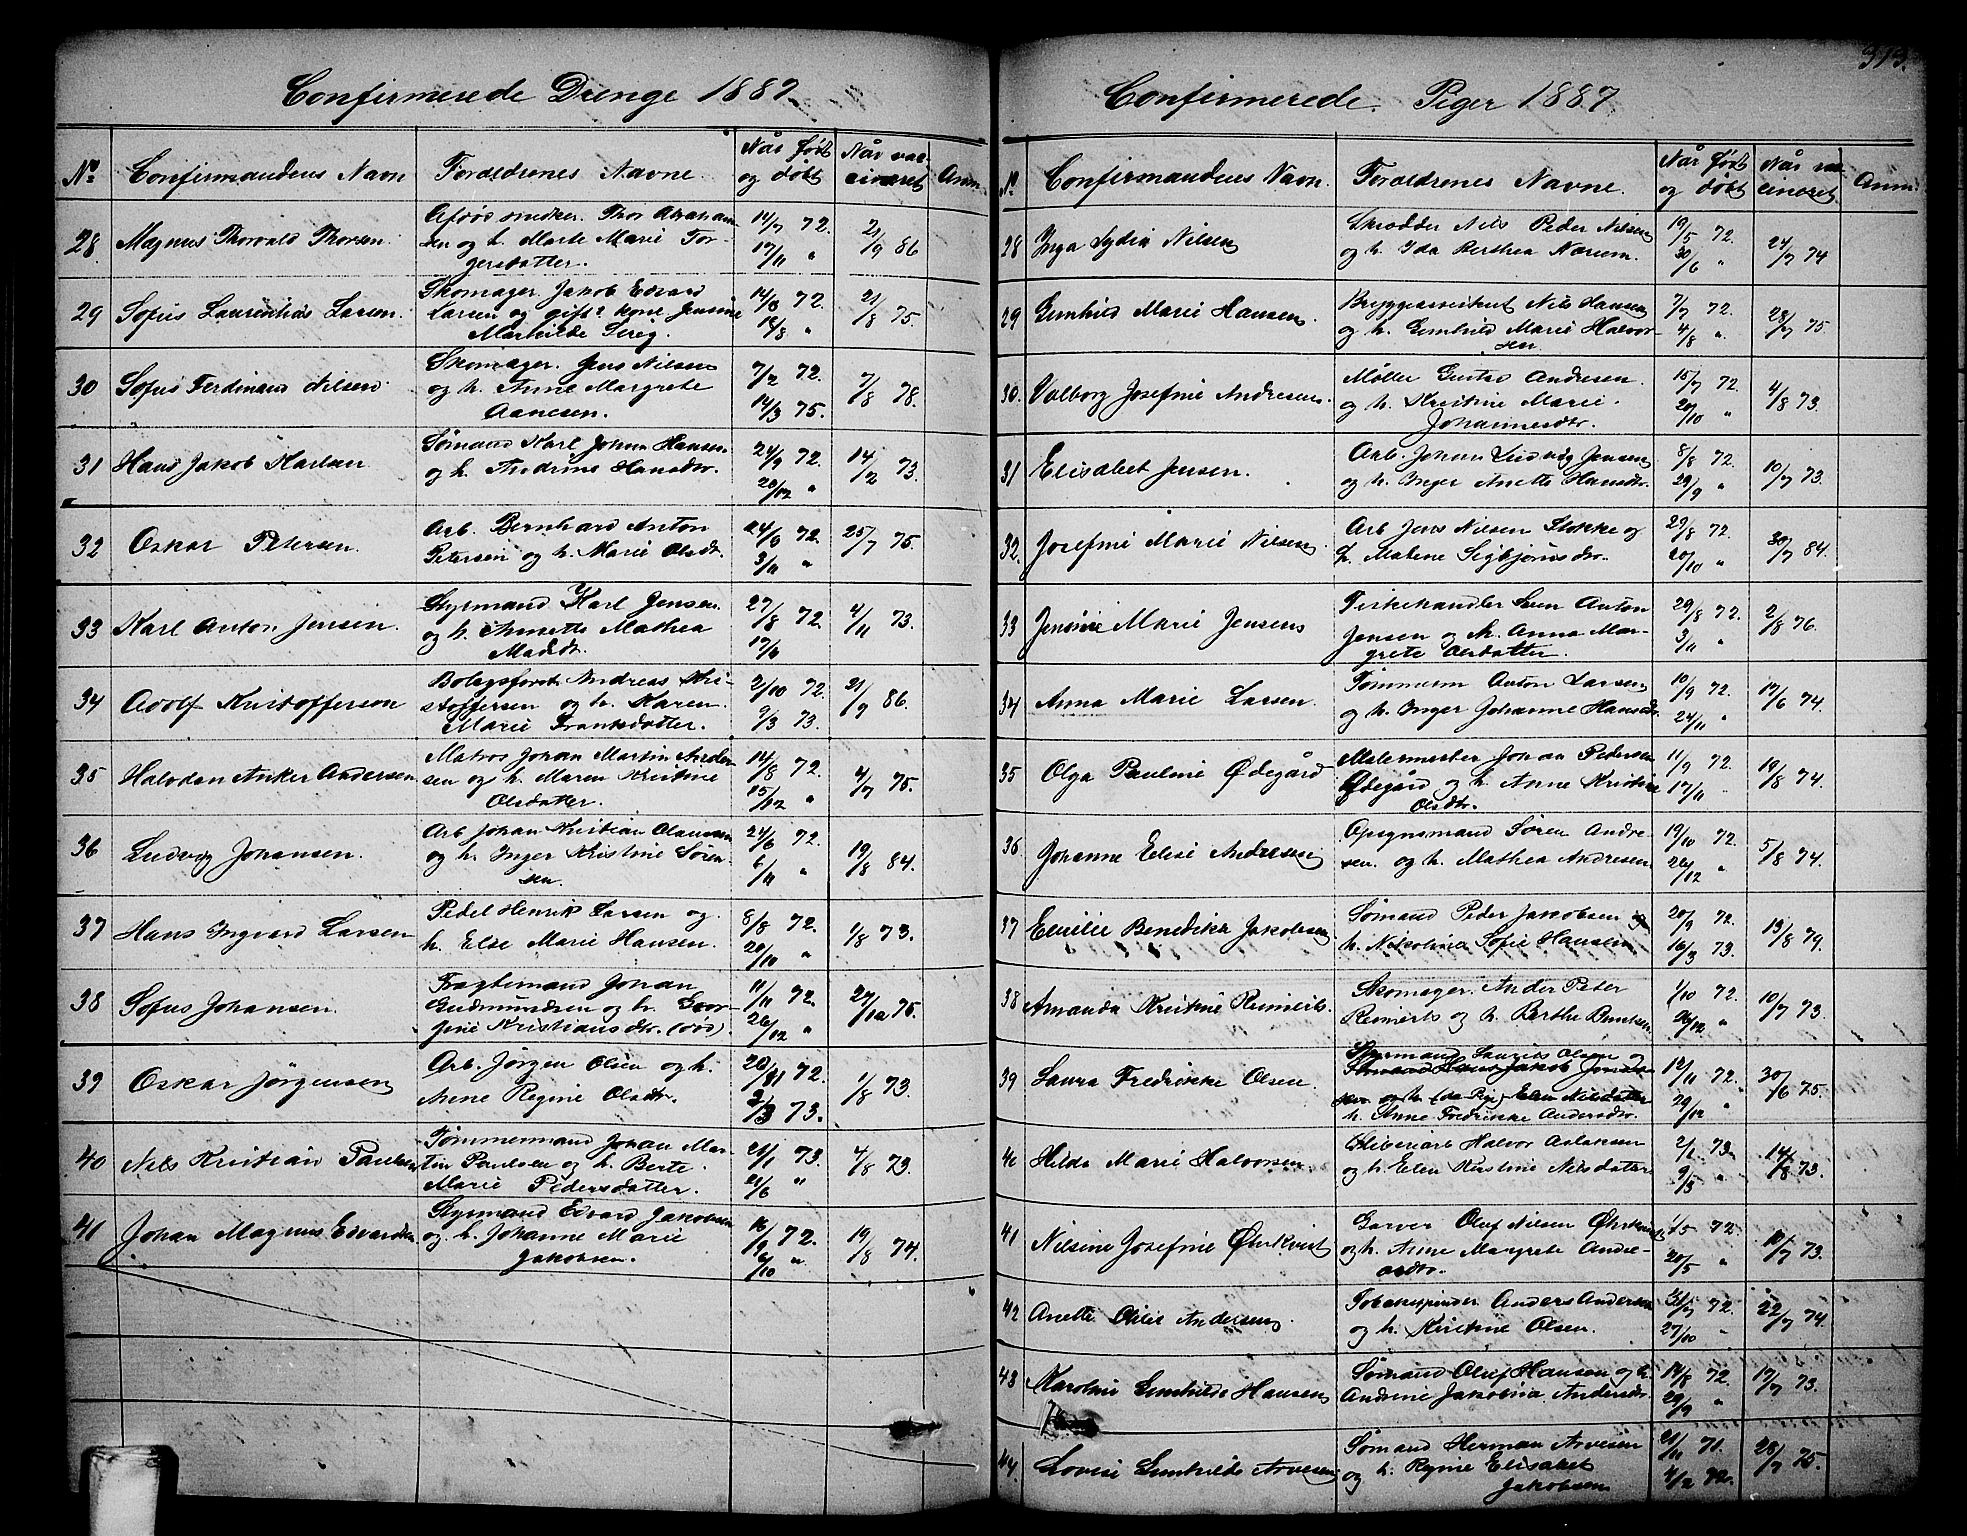 Confirmerede Drenge 1887.
No Confirmandens Navn Forældrenes Navne. Når født og døbt Når vaccineret Anm.
28 Magnus Thorvald Thorsen.
Afdøs snedker. Thor Abraham-
sen og h. Marte Marie Tor-
gersdatter.
14/7 72. 17/11 " 21/9 86
29 Sofus Laurentius Larsen.
Skomager Jakob Edvard
Larsen og gift? kone Jensine
Mathilde Greg.
72. 21/8 75.
30 Sofus Ferdinand Nilsen
Skomager. Jens Nilsen
og h. Anne Margrete
Aanesen.
7/2 72. 14/3 75. 7/8 78.
31 Hans Jakob Karlsen
Sømand Karl Johan Hansen
og h. Andrine Hansdtr.
24/9 72. 20/12 " 14/2 73.
32 Oskar Petersen.
Arb. Bernhard Anton
Petersen og h. Marie Olsdtr.
72. 3/11 " 25/7 75.
33 Karl Anton Jensen.
Styrmand Karl Jensen
og h. Annette Mathea
Madsdtr.
27/8 72. 4/11 73.
34 Adolf Kristofferson
Andreas Kri-
stoffersen og h. Karen
Marie Franksdatter.
2/10 72. 9/3 73. 21/9 86.
35 Halvdan Anker Andersen
Matros Johan Martin Ander-
sen og h. Maren Kristine
Olsdatter.
14/8 72. 15/12 " 4/7 75.
36 Ludvig Johansen.
Arb Johan Kristian Olaussen
og h. Inger Kristine Søren-
sen.
24/6 72. 6/11 " 19/8 84.
37 Hans Ingvard Larsen
Pedel Henrik Larsen og
h. Else Marie Hansen.
8/8 72. 20/10 " 1/8 73.
38 Sofus Johansen.
Fragtemand Johan
Gudmundsen og h. Geor-
gine Kristiansdtr. (død)
11/11 72. 26/12 " 27/12 75.
39 Oskar Jørgensen
Arb. Jørgen Olsen og h.
Anne Regine Olsdtr.
72. 2/3 73. 1/8 73.
40 Nils Kristian Paulsen
Tømmermand Johan Mar-
tin Paulsen og h. Berte
Marie Pedersdatter.
21/1 73. 21/6 " 4/8 73.
41 Johan Magnus Edvardsen
Styrmand Edvard Jakobsen
og h. Johanne Marie
Jakobsen.
72. " 19/8 74.
313.
Confirmerede Piger 1887
No Confirmandens Navn. Forældrenes Navne. Når født og døbt Når vaccineret Anm.
28 Inga Lydia Nilsen
Skrædder Nils Peder Nilsen
og h. Ida Berthea Narum.
19/5 72. 30/6 " 24/7 74
29 Gunhild Marie Hansen
Bryggearbeident Nils Hansen
og h. Gunhild Marie Halvor-
sen.
7/7 72. 4/8 " 28/7 75
30. Valborg Josefine Andresen.
Møller Gustav Andresen.
og h. Kristine Marie
Johannesdtr.
15/7 72. 20/10 " 4/8 73.
31 Elisabet Jensen.
Arb. Johan Ludvig Jensen
og h. Inger Anette Hansdtr.
8/8 72. 29/9 " 10/7 73.
32. Josefine Marie Nilsen
Arb Jens Nilsen Stokke og
h. Malene Sigbjørnsdtr.
29/8 72. 20/10 " 30/7 84.
33 Jensine Marie Jensen
Fiskehandler Sven Anton
Jensen og h. Anna Mar-
grete Olsdatter.
29/8 72. 3/11 " 2/8 76.
34 Anna Marie Larsen.
Tømmerm Anton Larsen
og h. Inger Johanne Hansdtr.
10/9 72. 24/11 " 17/6 74.
35 Olga Pauline Ødegård
Malermester Johan Pedersen
Ødegård og h. Anne Kristine
Olsdtr.
11/9 72. 17/11 19/8 74.
36 Johanne Elise Andresen
Opsynsmand Søren Andre-
sen. og h. Mathea Andresen
19/10 72. 26/12 " 5/8 74.
37 Emilie Benedikte Jakobsen
Sømand Peder Jakobsen og
h. Nikoline Sofie Hansen
20/9 72. 16/3 73. 13/8 79.
38 Amanda Kristine Reinerts.
Skomager. Ander Peter
Reinerts og h. Berthe Bentsen
1/10 72. 26/12 " 10/7 73.
39 Laura Fredrikke Olsen.
Styrmand Laurits Olsen og
Sømand Hans Jakob
og h. Elen Nilsdatter
h. Anne Fredrikke Andersdtr.
12/11 72. 29/12 " 30/6 75.
40 Hilda Marie Halvorsen
Sliberiarb Halvor Aslaksen
og h. Elen Kirstine Nilsdatter
73. " 14/8 73.
41 Nilsine Josefine Øhrkvist
Garver Oluf Nilsen Øhrkvist
og h. Anne Margrete Andre-
asdtr.
1/5 72. 20/5 " 73.
42 Anette Othilie Andersen.
Tobakspinder Anders Andersen
og h. Kristine Olsen.
72. 27/10 22/7 74.
43 Karoline Gunhilde Hansen
Sømand Oluf Hansen og h.
Andrine Jakobine Andersdtr.
14/8 72. 29/9 " 17/7 73.
44 Lovise Gunhilde Arvesen
Sømand Herman Arvesen
og h. Regine Elisabet
Jakobsen
21/11 71. 4/2 72. 28/7 75.